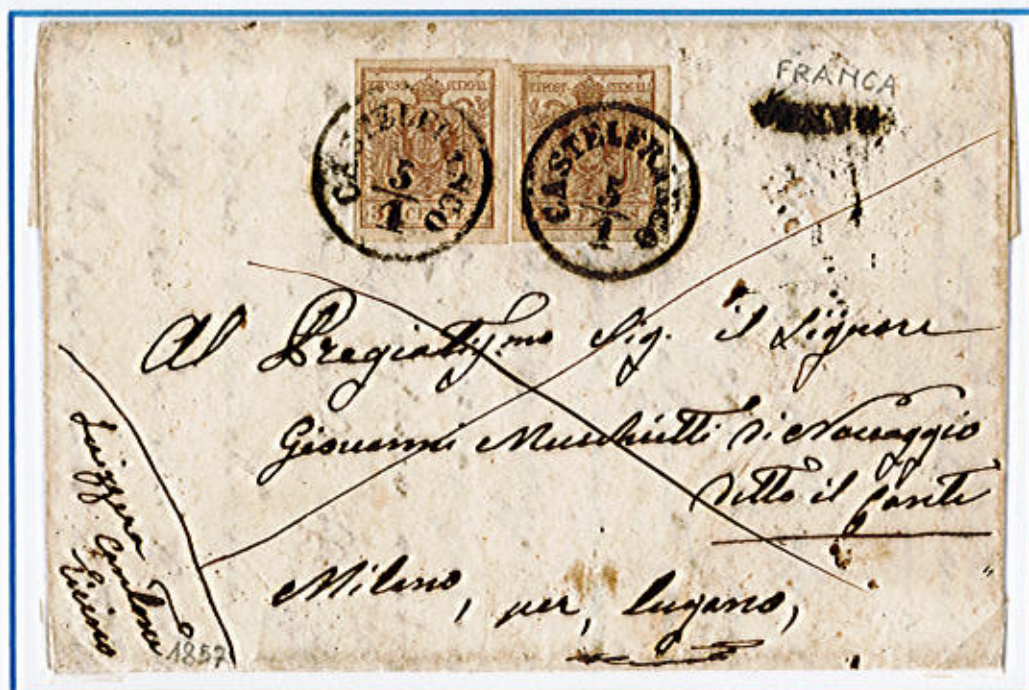 FRANCA
CASTELFRANCO
5
1
CASTELFRANCO
5
1
Al Pregiatis.mo Sig. il Signore
Giovanni di
detto il Conte
Milano, per, Lugano,
Svizzera
Cantone
Ticino
1857